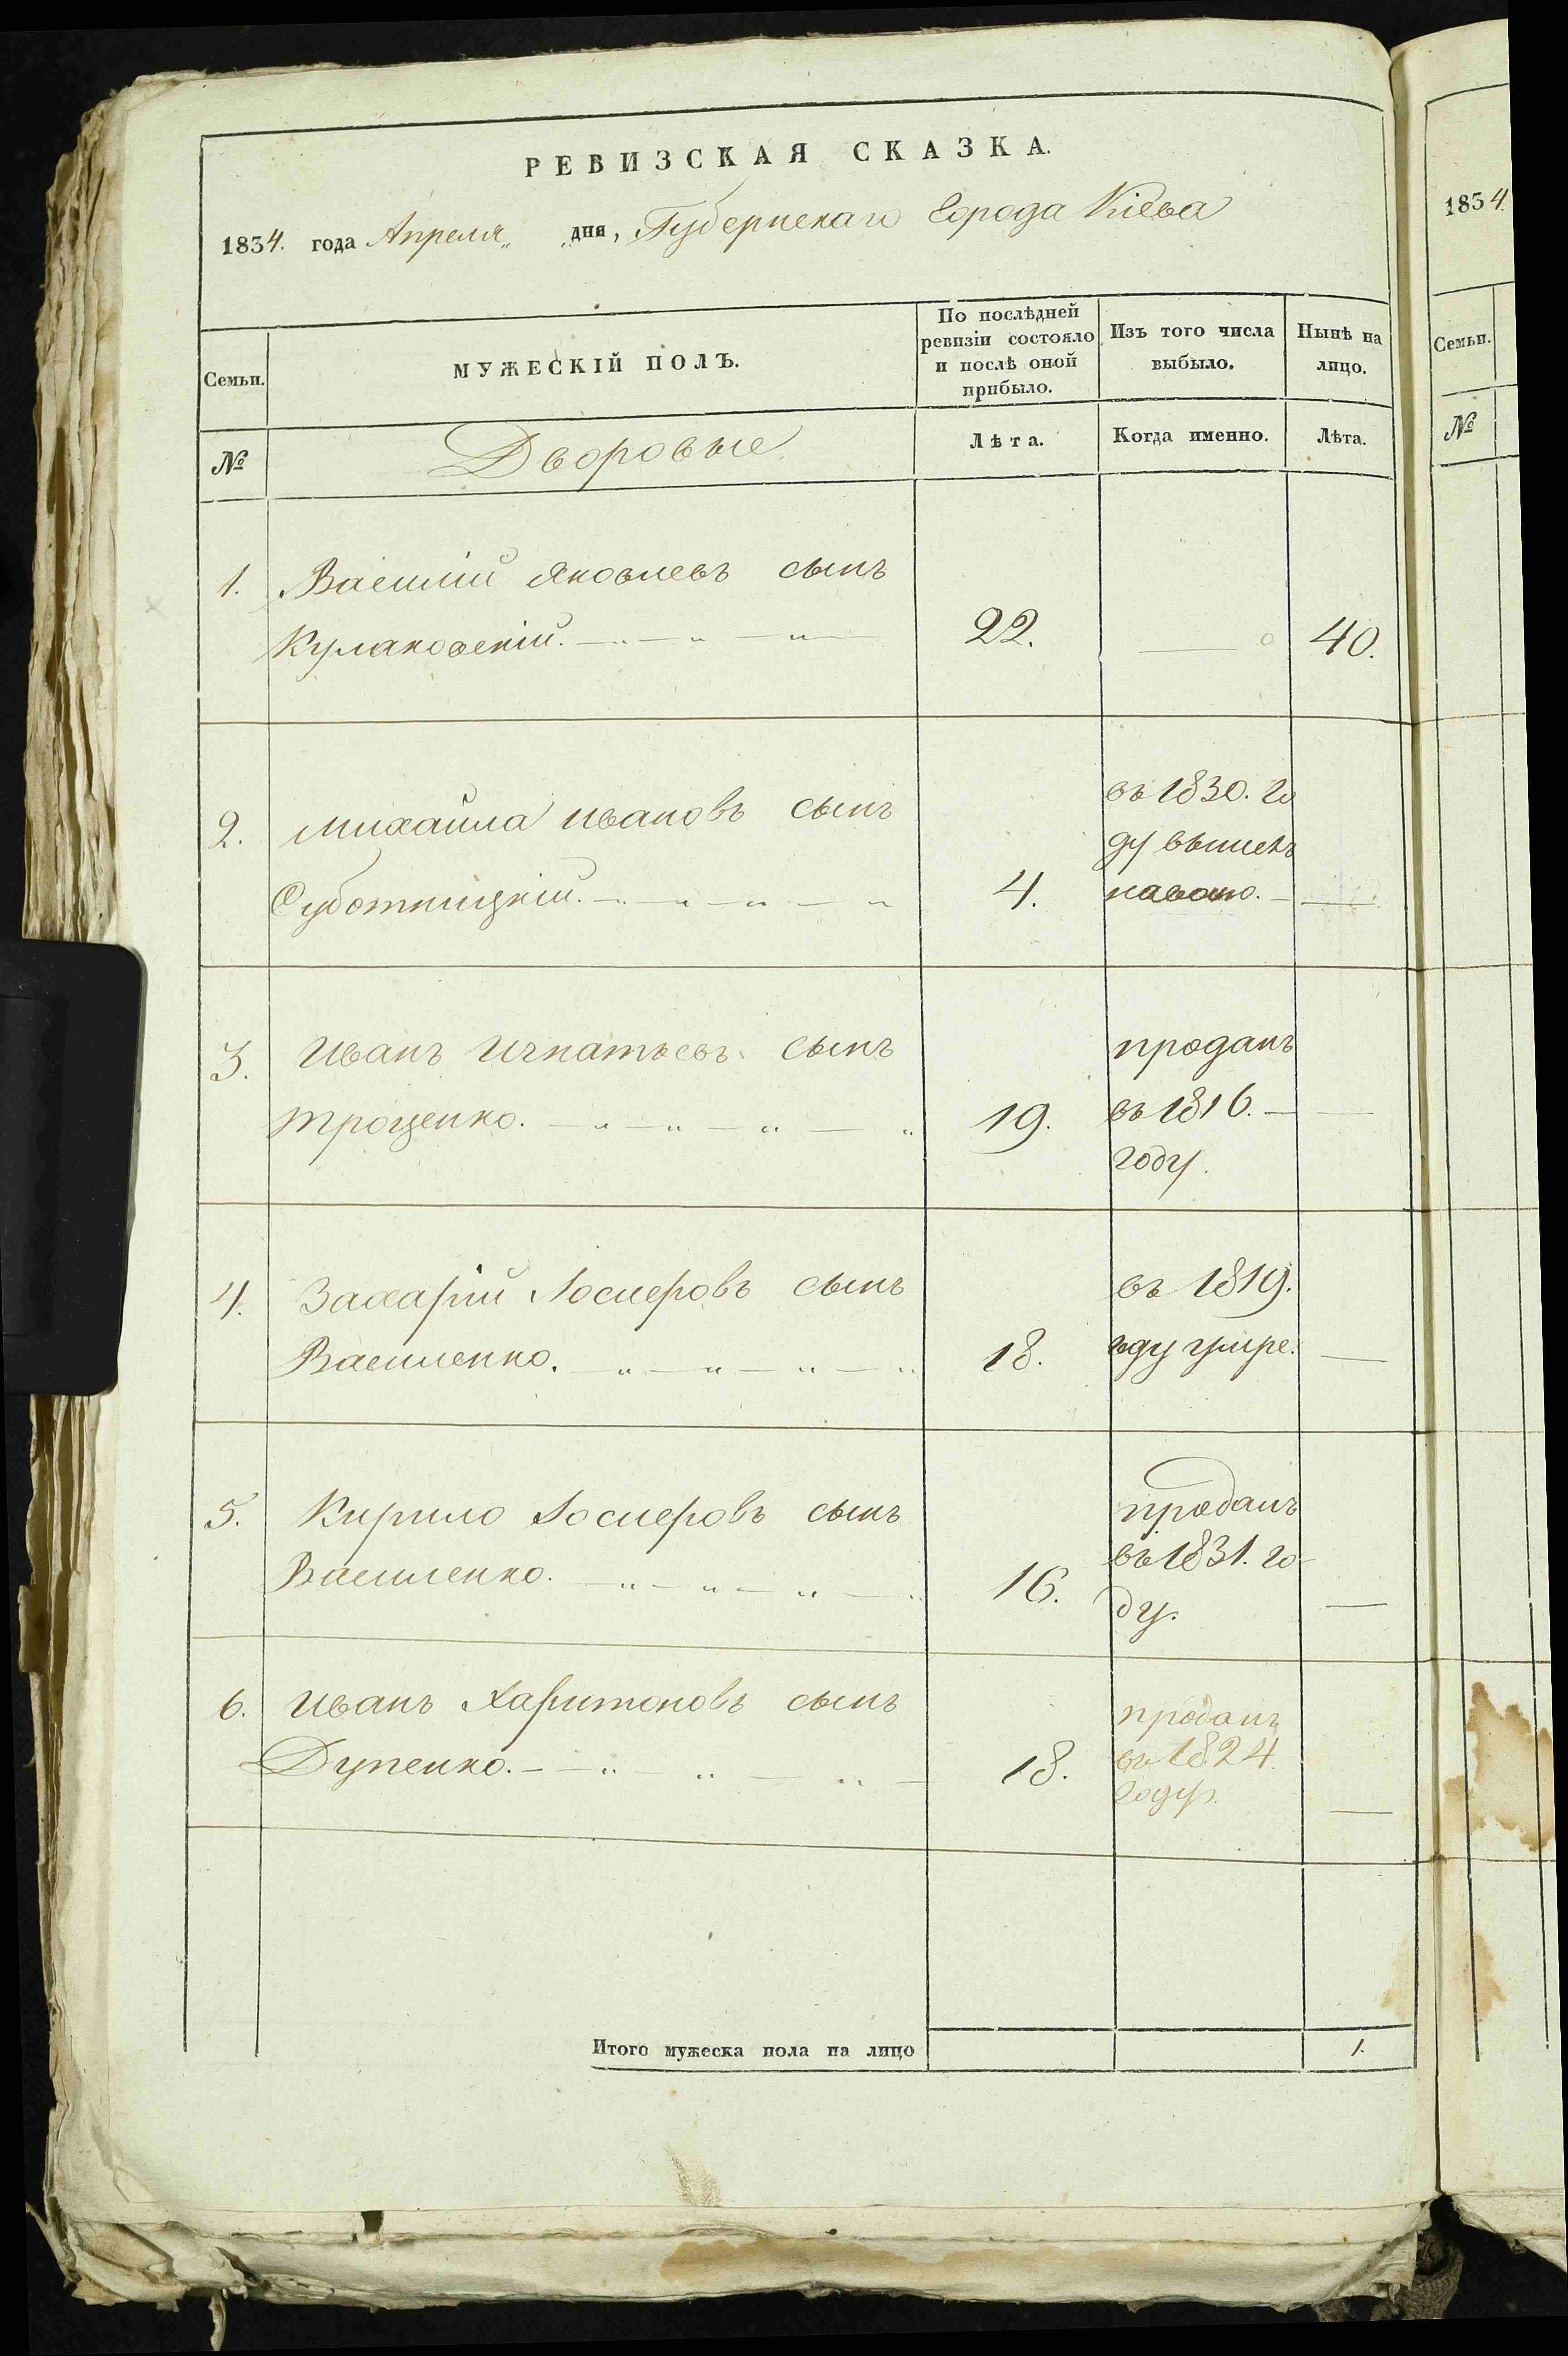 РЕВИЗСКАЯ СКАЗКА.
1834. года Апреля „ „ дня, Губернскаго Города Кіева
Семьи.
МУЖЕСКІЙ ПОЛЪ.
По послѣдней ревизіи состояло и послѣ оной прибыло.
Изъ того числа выбыло.
Нынѣ на лицо.
№
Дворовые
Лѣта.
Когда именно.
Лѣта.
1. Василій Яковлевъ сынъ
Кулаковскій. 22. — 40.
въ 1830. го
2. Михайла Ивановъ сынъ
ду вышелъ
Суботницкій. 4. —
3. Иванъ Игнатьевъ сынъ
проданъ
Троценко. 19. въ 1816. —
году.
4. Захарій Іосиферовъ сынъ
въ 1819.
Василенко. 18. году умре. —
5. Кирило Іосиферовъ сынъ
проданъ
Василенко. 16. въ 1831. го
ду. —
6. Иванъ Харитоновъ сынъ
проданъ
Дупенко. 18. въ 1824
году. —
Итого мужеска пола на лицо 1.
1834.
Семьи.
№